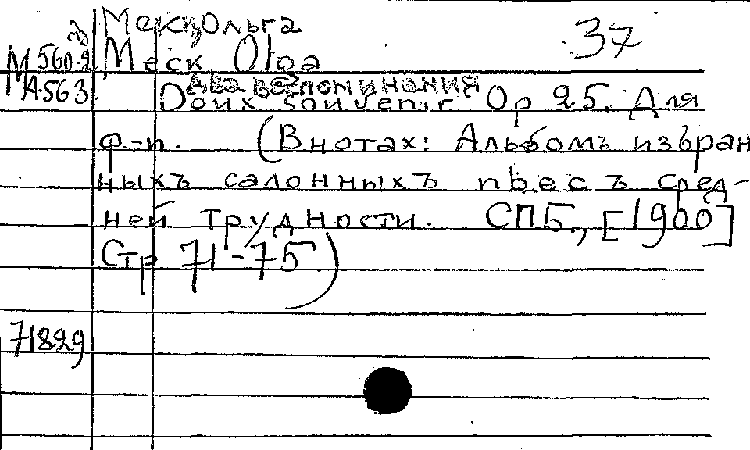 Мекк, Ольга
37
М 560.2 Меск Olga
А563 Два воспоминания
Doux souvenir. Op 25. Для
ф-п. (В нотах: Альбомъ избран
ныхъ салонныхъ пьесъ сред-
ней трудности. СПБ., [1900]
Стр 71-75)
71829